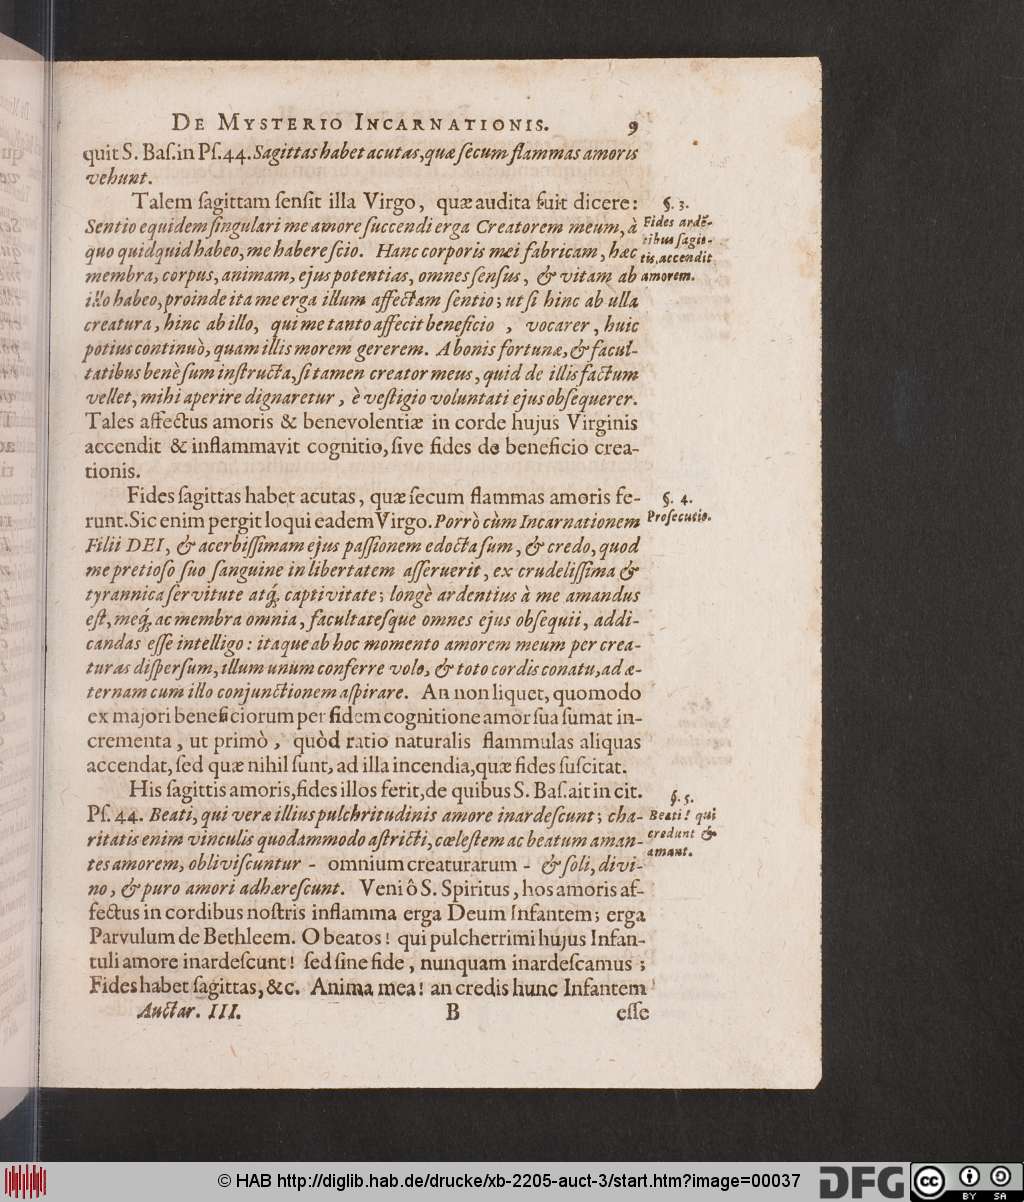 DE MYSTERIO INCARNATIONIS. 9
quit S. Baſ. in Pſ. 44. Sagittas habet acutas, quæ ſecum flammas amoris
vehunt.
Talem ſagittam ſenſit illa Virgo, quæ audita fuit dicere:
Sentio equidem ſingulari me amore ſuccendi erga Creatorem meum, à
quo quidquid habeo, me habere ſcio. Hanc corporis mei fabricam, hæc
membra, corpus, animam, ejus potentias, omnes ſenſus, & vitam ab
illo habeo, proinde ita me erga illum affectam ſentio; ut ſi hinc ab ulla
creatura, hinc ab illo, qui me tanto affecit beneficio, vocarer, huic
potius continuò, quam illis morem gererem. A bonis fortunæ, & facul-
tatibus benè ſum inſtructa, ſi tamen creator meus, quid de illis factum
vellet, mihi aperire dignaretur, è veſtigio voluntati ejus obſequerer.
Tales affectus amoris & benevolentiæ in corde hujus Virginis
accendit & inflammavit cognitio, ſive fides de beneficio crea-
tionis.
§. 3.
Fides ardẽ-
tibus ſagit-
tis, accendit
amorem.
Fides ſagittas habet acutas, quæ ſecum flammas amoris fe-
runt. Sic enim pergit loqui eadem Virgo. Porrò cùm Incarnationem
Filii DEI, & acerbiſſimam ejus paſſionem edocta ſum, & credo, quod
me pretioſo ſuo ſanguine in libertatem aſſeruerit, ex crudeliſſima &
tyrannica ſervitute atq́; captivitate; longè ardentius à me amandus
eſt, meq́; ac membra omnia, facultateſque omnes ejus obſequii, addi-
candas eſſe intelligo: itaque ab hoc momento amorem meum per crea-
turas diſperſum, illum unum conferre volo, & toto cordis conatu, ad æ-
ternam cum illo conjunctionem aſpirare. An non liquet, quomodo
ex majori beneficiorum per fidem cognitione amor ſua ſumat in-
crementa, ut primò, quòd ratio naturalis flammulas aliquas
accendat, ſed quæ nihil ſunt, ad illa incendia, quæ fides ſuſcitat.
§. 4.
Proſecutio.
His ſagittis amoris, fides illos ferit, de quibus S. Baſ. ait in cit.
Pſ. 44. Beati, qui veræ illius pulchritudinis amore inardeſcunt; cha-
ritatis enim vinculis quodammodo aſtricti, cæleſtem ac beatum aman-
tes amorem, obliviſcuntur - omnium creaturarum - & ſoli, divi-
no, & puro amori adhæreſcunt. Veni ô S. Spiritus, hos amoris af-
fectus in cordibus noſtris inflamma erga Deum Infantem; erga
Parvulum de Bethleem. O beatos! qui pulcherrimi hujus Infan-
tuli amore inardeſcunt! ſed ſine fide, nunquam inardeſcamus;
Fides habet ſagittas, &c. Anima mea! an credis hunc Infantem
§. 5.
Beati! qui
credunt &
amant.
Auctar. III. B eſſe
© HAB http://diglib.hab.de/drucke/xb-2205-auct-3/start.htm?image=00037
DFG
cc
BY SA